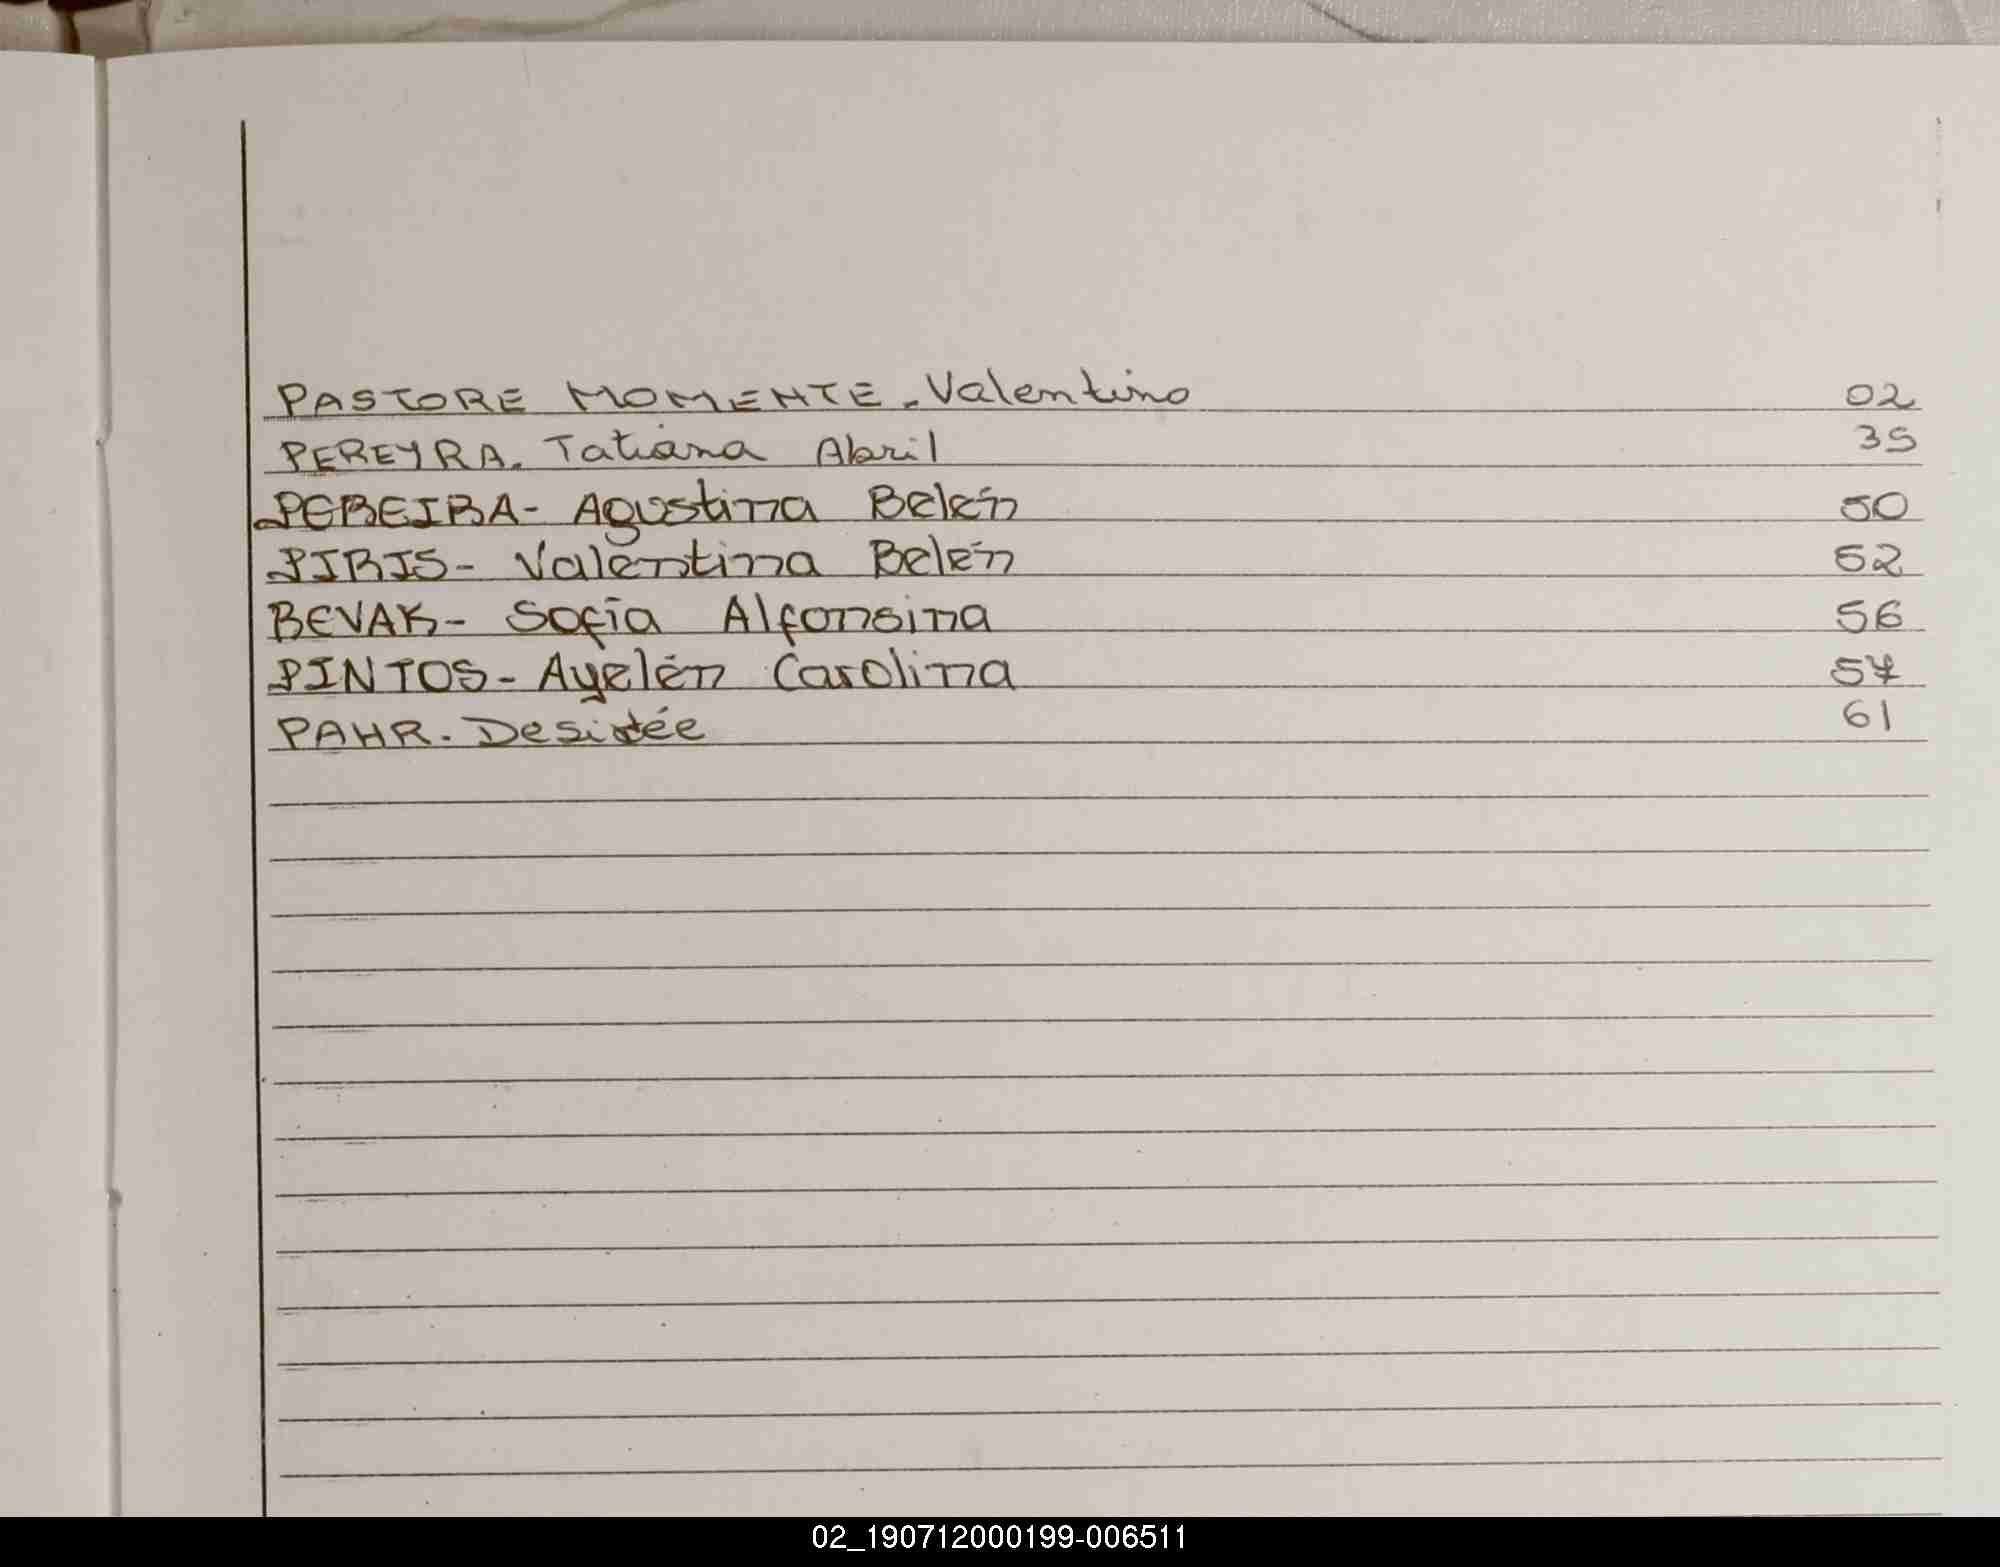 PASTORE MOMENTE. Valentino 02
PEREYRA. Tatiana Abril 35
PEREIRA- Agustina Belén 50
PIRIS- Valentina Belén 52
BEVAK- Sofía Alfonsina 56
PINTOS- Ayelén Carolina 57
PAHR. Desirée 61
02_190712000199-006511